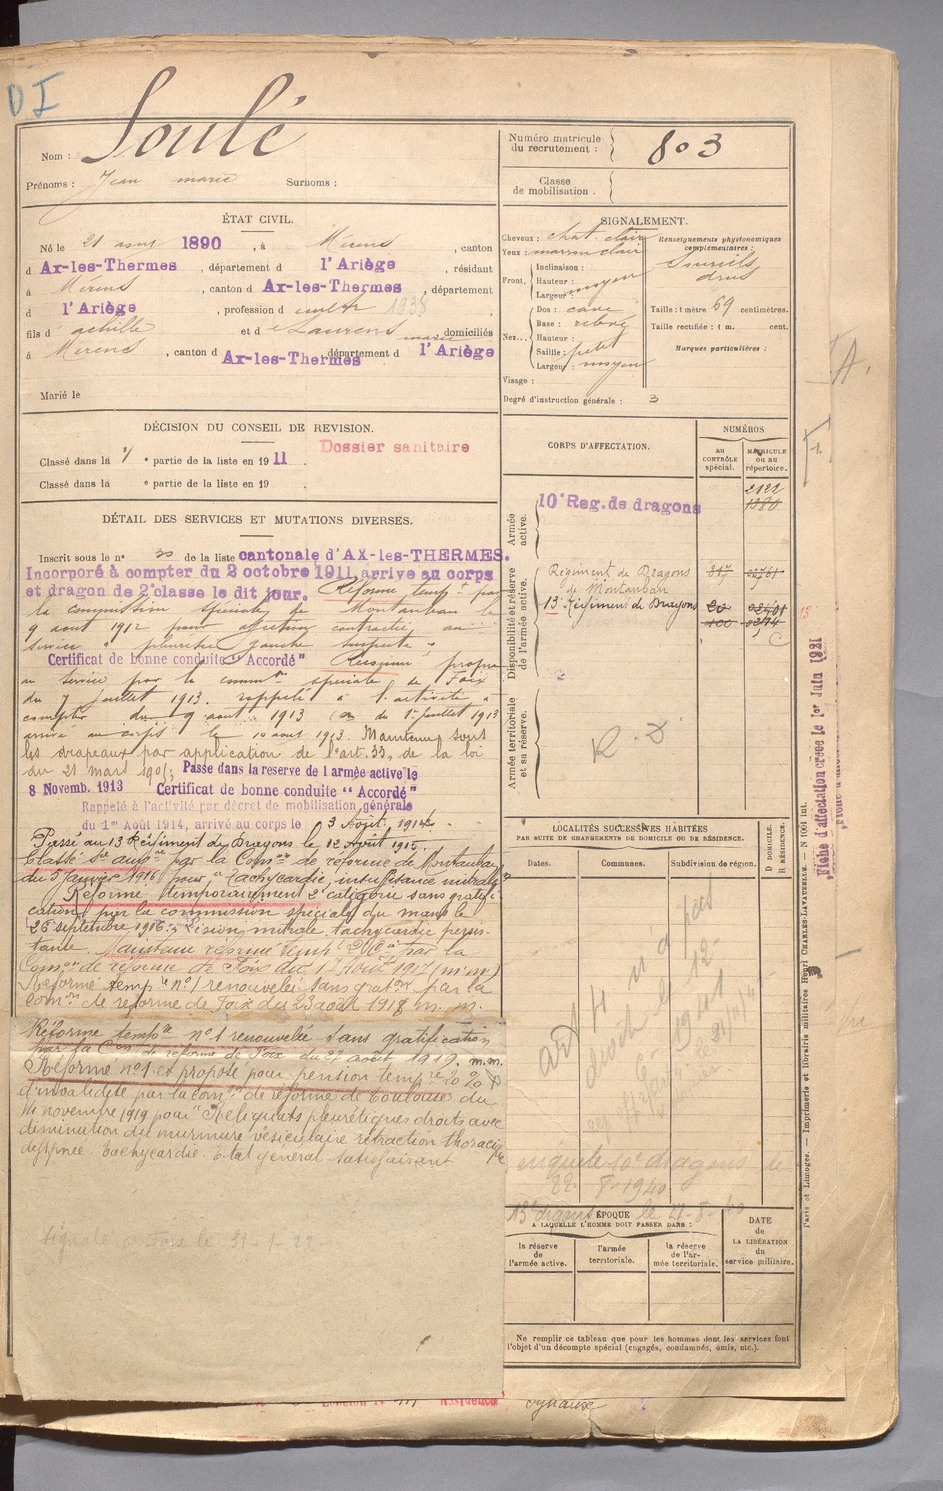 D I
Nom : Soulé
Prénoms : Jean marie Surnoms :
Numéro matricule
du recrutement : 803
Classe
de mobilisation :
ÉTAT CIVIL.
Né le 21 1890 , à Mérens , canton
d Ax-les-Thermes , département d l'Ariège , résidant
à Mérens , canton d Ax-les-Thermes , département
d l'Ariège , profession d 1938 ,
fils d achille et d e Laurens marie domiciliés
à Mérens , canton d Ax-les-Thermes , département d l'Ariège
Marié le
SIGNALEMENT.
Cheveux : chat. clair
Yeux : marron clair
Front. Inclinaison :
Hauteur : moyen
Largeur :
Nez... Dos : cave
Base :
Hauteur :
Saillie : petit
Largeur : moyen
Visage :
Renseignements physionomiques
complémentaires :
Sourcils
drus
Taille : 1 mètre 69 centimètres.
Taille rectifiée : 1 m. cent.
Marques particulières :
Degré d'instruction générale : 3
DÉCISION DU CONSEIL DE REVISION.
Dossier sanitaire
Classé dans la 1 e partie de la liste en 1911 .
Classé dans la e partie de la liste en 19
DÉTAIL DES SERVICES ET MUTATIONS DIVERSES.
Inscrit sous le n° de la liste cantonale d'AX-les-THERMES.
Incorporé à compter du 2 octobre 1911, arrive au corps
et dragon de 2e classe le dit jour. Réformé temp.t par
la commission spéciale de Montauban le
9 aout 1912 pour affection contractée au
service " pleurésie gauche suspecte "
Certificat de bonne conduite " Accordé " Reconnu propre
au service par la comm.on spéciale de Foix
du 7 juillet 1913. rappelé à l'activité à
compter du 9 aout 1913 ( du 1er juillet 1913
arrivé au corps le 10 aout 1913. Maintenu sous
les drapeaux par application de l'art. 33, de la loi
du 21 mars 1905; Passe dans la reserve de l armée active le
8 Novemb. 1913 Certificat de bonne conduite " Accordé "
Rappelé à l'activité par décret de mobilisation générale
du 1er Août 1914, arrivé au corps le 3 Août 1914.
Passé au 13 Régiment de Dragons le 12 Août 1915.
Classé Sce aux.re par la Com.on de réforme de Montauban
du 5 Janvier 1916 pour " Tachycardie, insuffisance mitrale"
Réformé temporairement 2e catégorie sans gratifi-
cation, par la commission spéciale du mans le
26 septembre 1916 : Lésion mitrale, tachycardie persis-
tante. Maintenu réformé temp. par la
Com.on de réforme de Foix du 17 Août 1917 (m m)
Réformé temp.re n°1 renouvelée sans grat.on par la
Com.on de réforme de Foix du 23 août 1918 m. m.
Réforme temp.re n°1 renouvelée sans gratification
par la Com. de réforme de Foix du 27 aout 1919. m.m.
Réformé n°1 et proposé pour pension temp.re 20 %
d'invalidité par la com.on de réforme de Toulouse du
14 novembre 1919 pour " Reliquats pleurétiques droits avec
diminution du murmure vésiculaire rétraction thoracique
dyspnée tachycardie. Etat général satisfaisant
Signalé à Foix le 31-1-22
CORPS D'AFFECTATION.
NUMÉROS
au
CONTRÔLE
spécial.
MATRICULE
ou au
répertoire.
Armée
active.
10e Reg. de dragons 2122
1380
Disponibilité et réserve
de l'armée active.
Régiment de Dragons
de Montauban
13e Régiment de Dragons
Armée territoriale
et sa réserve.
LOCALITÉS SUCCESSIVES HABITÉES
PAR SUITE DE CHANGEMENTS DE DOMICILE OU DE RÉSIDENCE.
Dates.
Communes.
Subdivision de région.
D DOMICILE.
R RÉSIDENCE.
Art 4 n'a pas
6-1941
enquete 10e dragons le
22-8-1940
13e dragons le 21-8-40
ÉPOQUE
A LAQUELLE L'HOMME DOIT PASSER DANS :
la réserve
de
l'armée active.
l'armée
territoriale.
la réserve
de l'ar-
mée territoriale.
DATE
de
LA LIBÉRATION
du
service militaire.
Ne remplir ce tableau que pour les hommes dont les services font
l'objet d'un décompte spécial (engagés, condamnés, omis, etc.).
Paris et Limoges. — Imprimerie et librairie militaires Henri CHARLES-LAVAUZELLE.
Fiche d'affectation créée le 1er Juin 1921